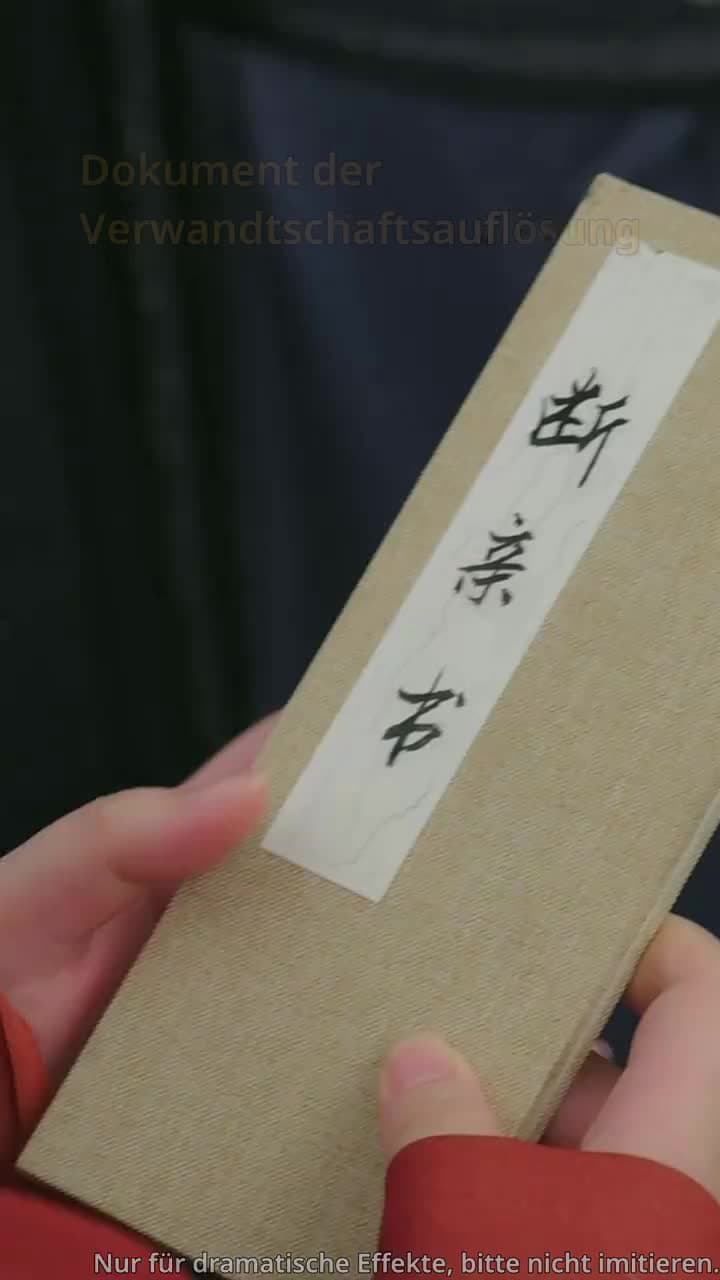 Dokument der
Verwandtschaftsauflösung
断亲书
Nur für dramatische Effekte, bitte nicht imitieren.